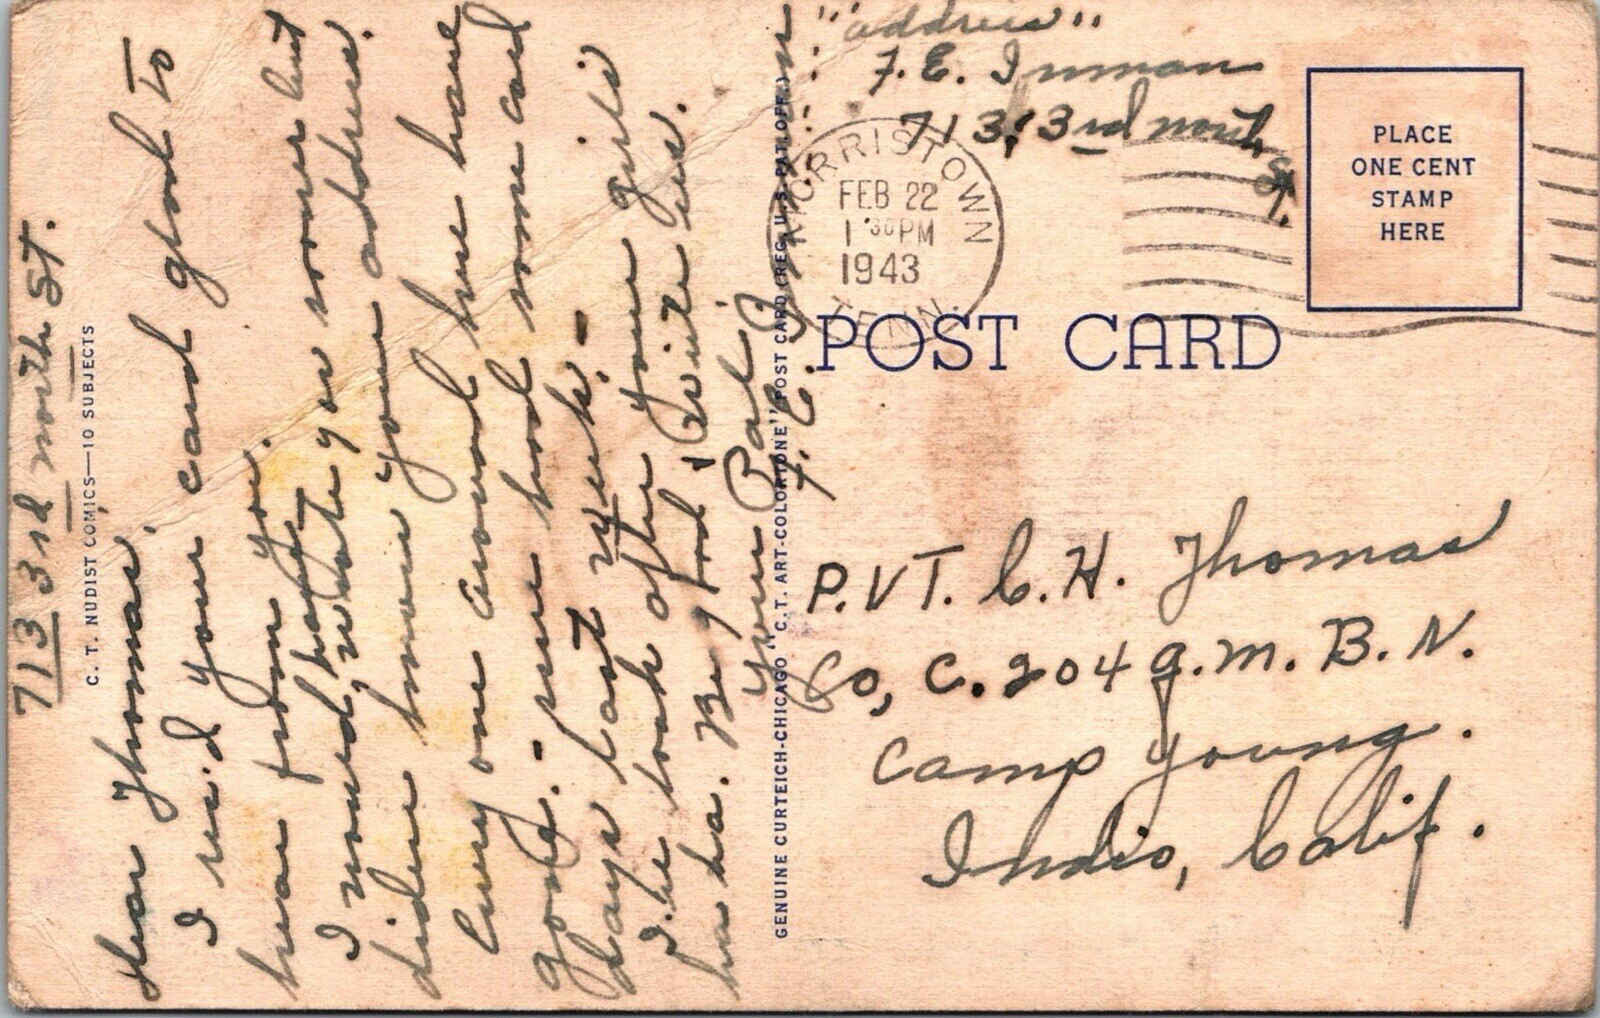 713 3rd north St.
C. T. NUDIST COMICS—10 SUBJECTS
Dear Thomas,
I rec'd your card glad to
hear from you.
I moved, hadn't wrote you sooner but
didn't know your address.
Every one around here have
gone. - we had some cool
days last week. -
I'll look after your girls
ha ha. Be good & write me.
Your Pal,
F. E. Inman
GENUINE CURTEICH-CHICAGO "C.T. ART-COLORTONE" POST CARD (REG. U.S. PAT. OFF.)
"address"
F. E. Inman
713, 3rd north
St.
MORRISTOWN
FEB 22
1 30 PM
1943
TENN.
PLACE
ONE CENT
STAMP
HERE
POST CARD
P.V.T. C. H. Thomas
Co, C. 204 Q. M. B. N.
Camp Young.
Indio, Calif.